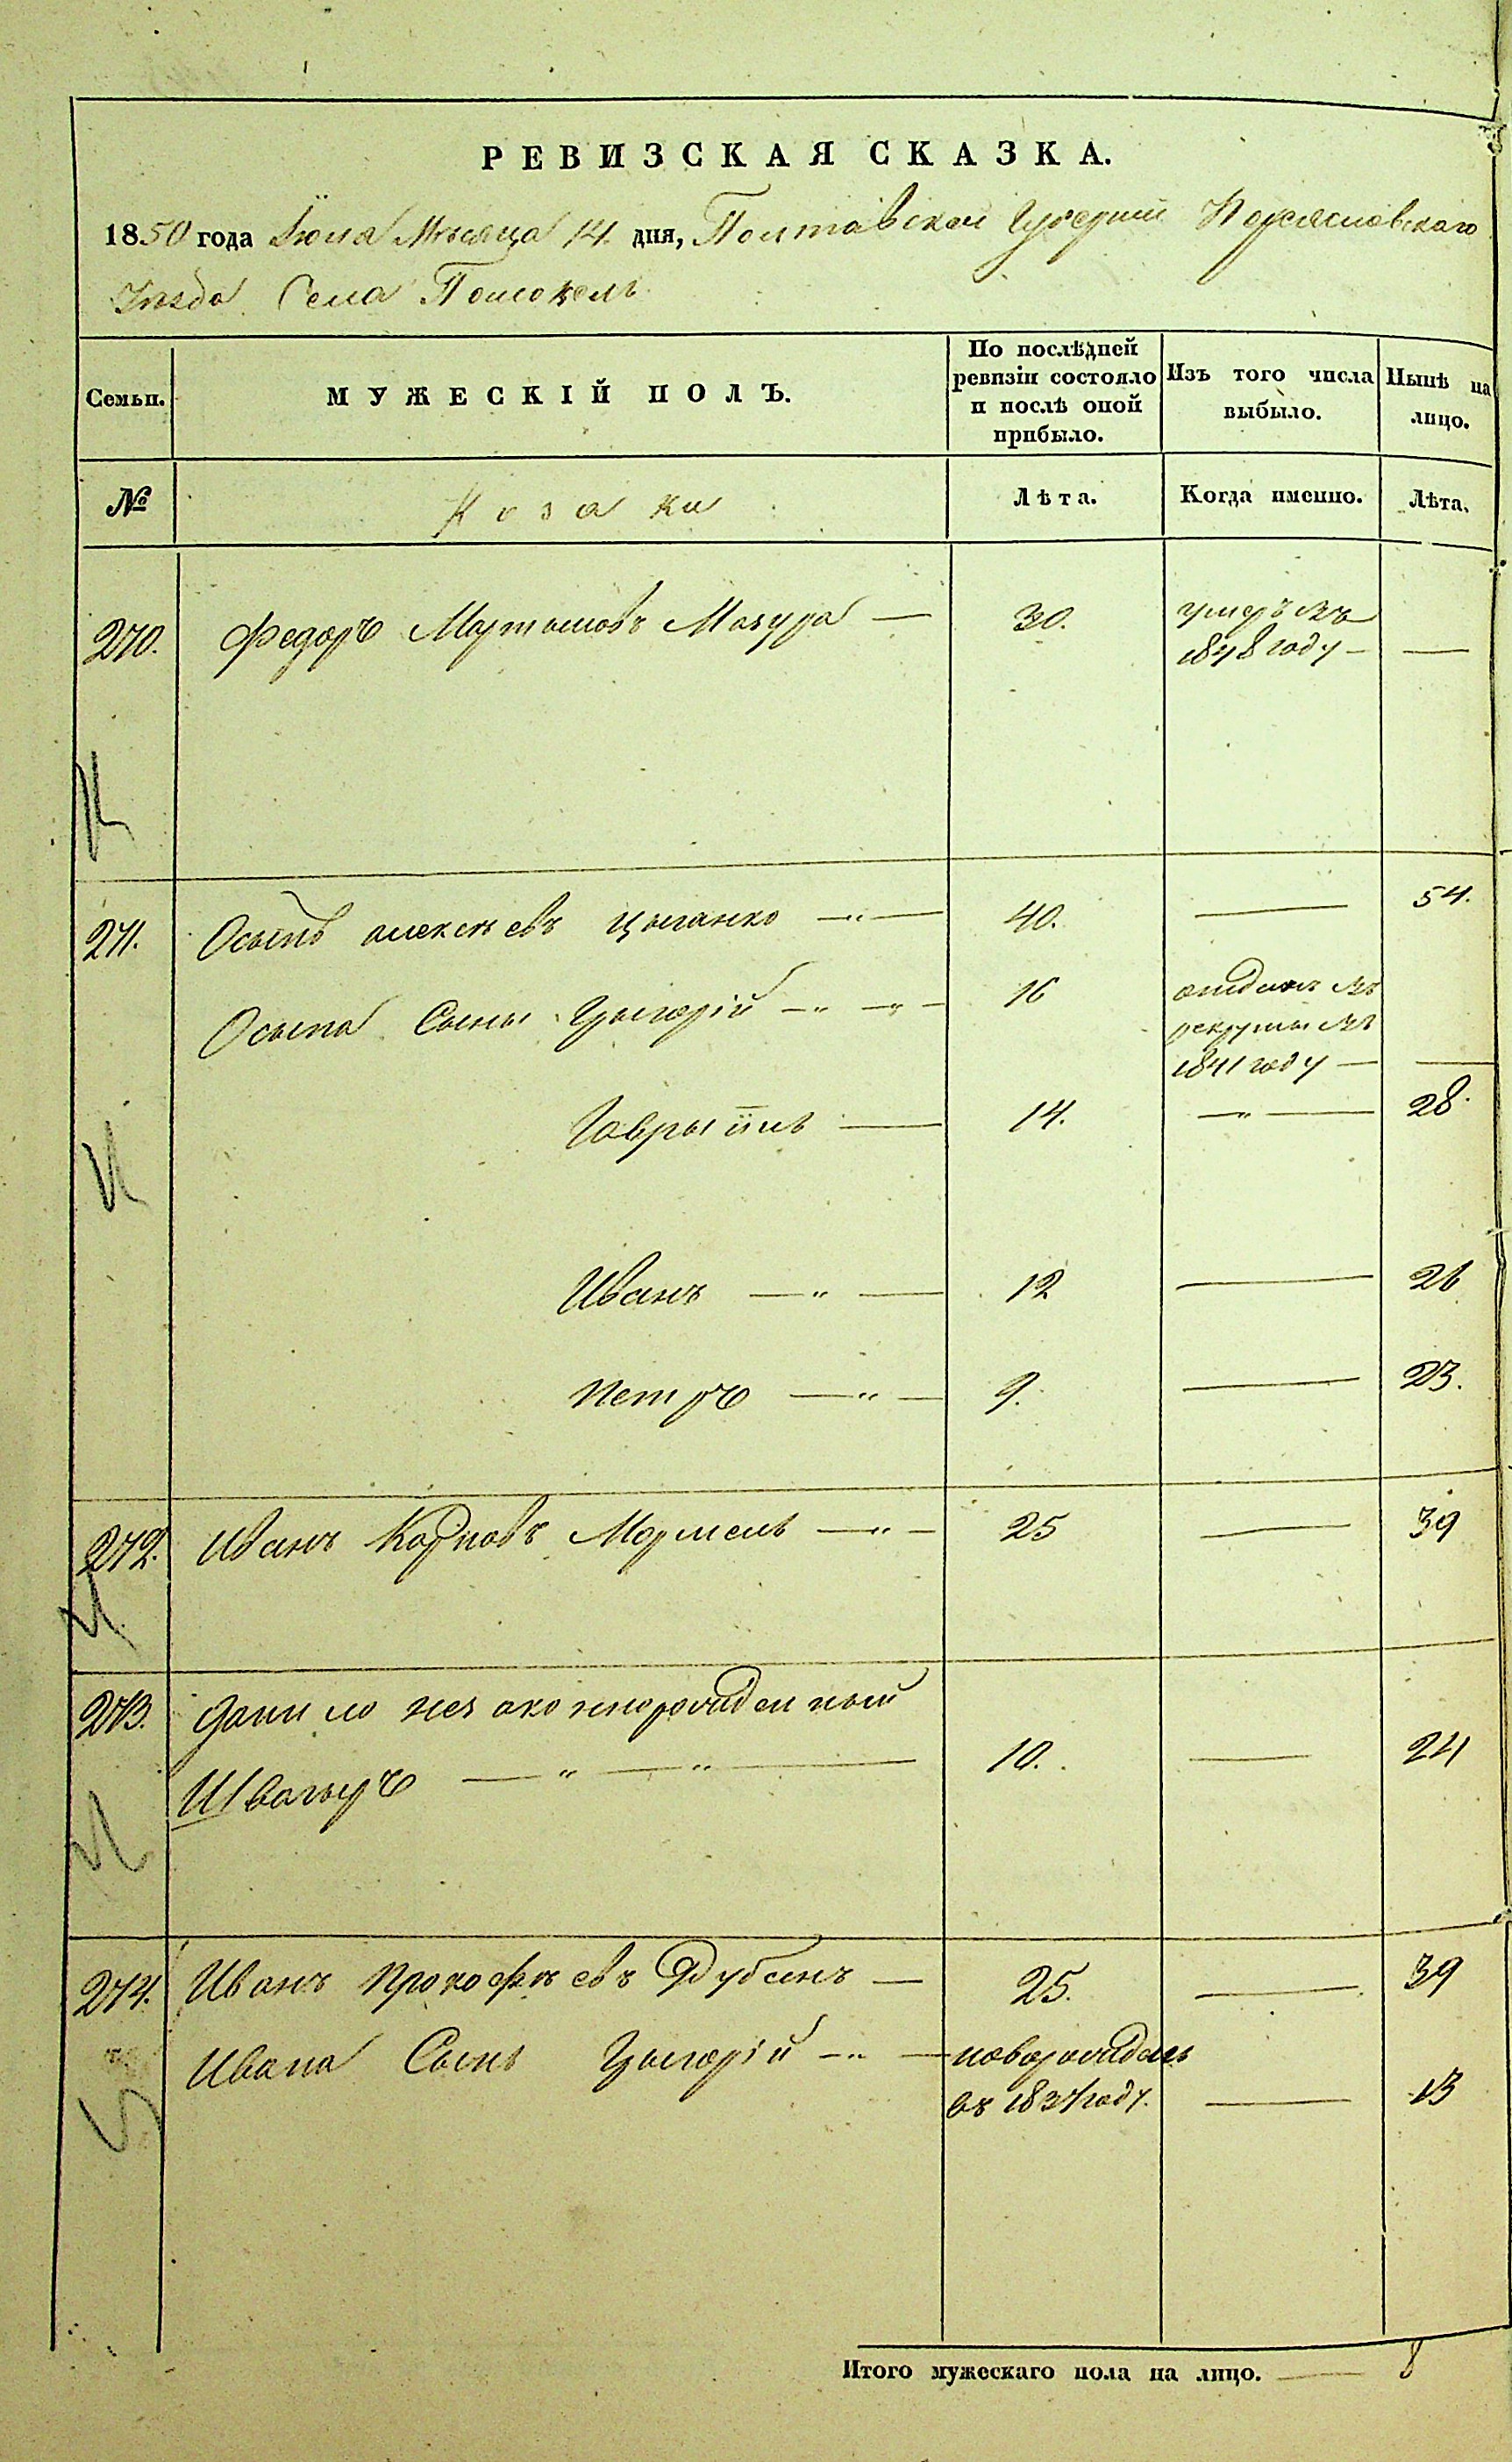 РЕВИЗСКАЯ СКАЗКА.
1850 года Іюля Мѣсяца 14. дня, Полтавской Губерніи Переяславскаго
Уѣзда Села Помоклъ
Семьи. МУЖЕСКІЙ ПОЛЪ. По послѣдней ревизіи состояло и послѣ оной прибыло. Изъ того числа выбыло. Нынѣ на лицо.
№ Козаки Лѣта. Когда именно. Лѣта.
270. Федоръ Мартыновъ Мазура — 30. умеръ въ
1848 году — —
271. Осыпъ Алексѣевъ Цыганко —"— 40. — 54.
Осыпа Сыны Грыгорій —"—"— 16 отданъ въ
рекруты въ
1841 году — —
Гаврыіилъ — 14. —"— 28.
Иванъ —"— 12 — 26
Петръ —"— 9. — 23.
272. Иванъ Карповъ Мармель —"— 25 — 39
273. Данило незаконнорожденный
Швагыръ —"—"— 10. — 24
274. Иванъ Прокофѣевъ Дубынъ — 25. — 39
Ивана Сынъ Грыгорій —"— новорожденъ
въ 1837 году. — 13
Итого мужескаго пола на лицо. — 8